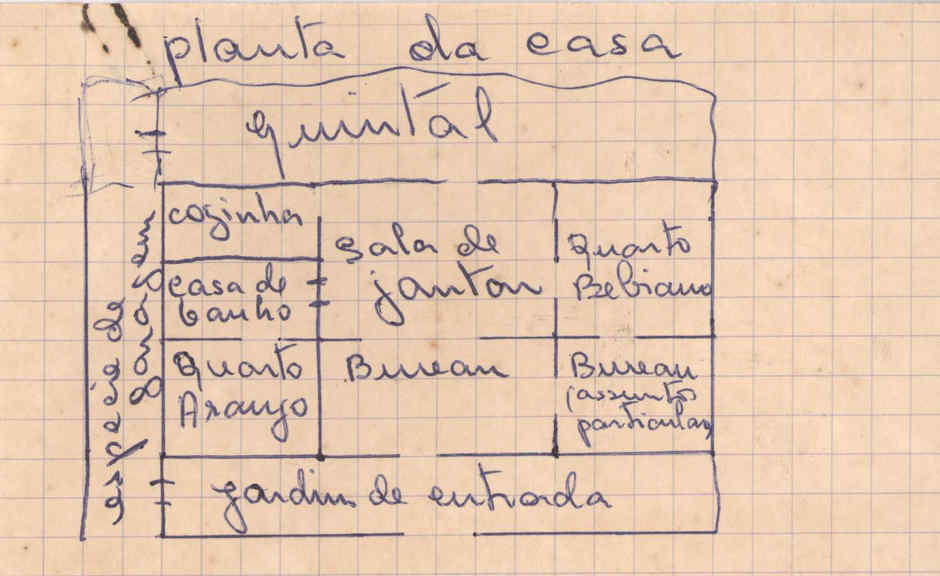 planta da casa
quintál
cozinha
sala de
jantar
Quarto
Bebiano
casa de
banho
Quarto
Araujo
Bureau
Bureau
(assuntos
particulares
jardim de entrada
espécie de
garágem